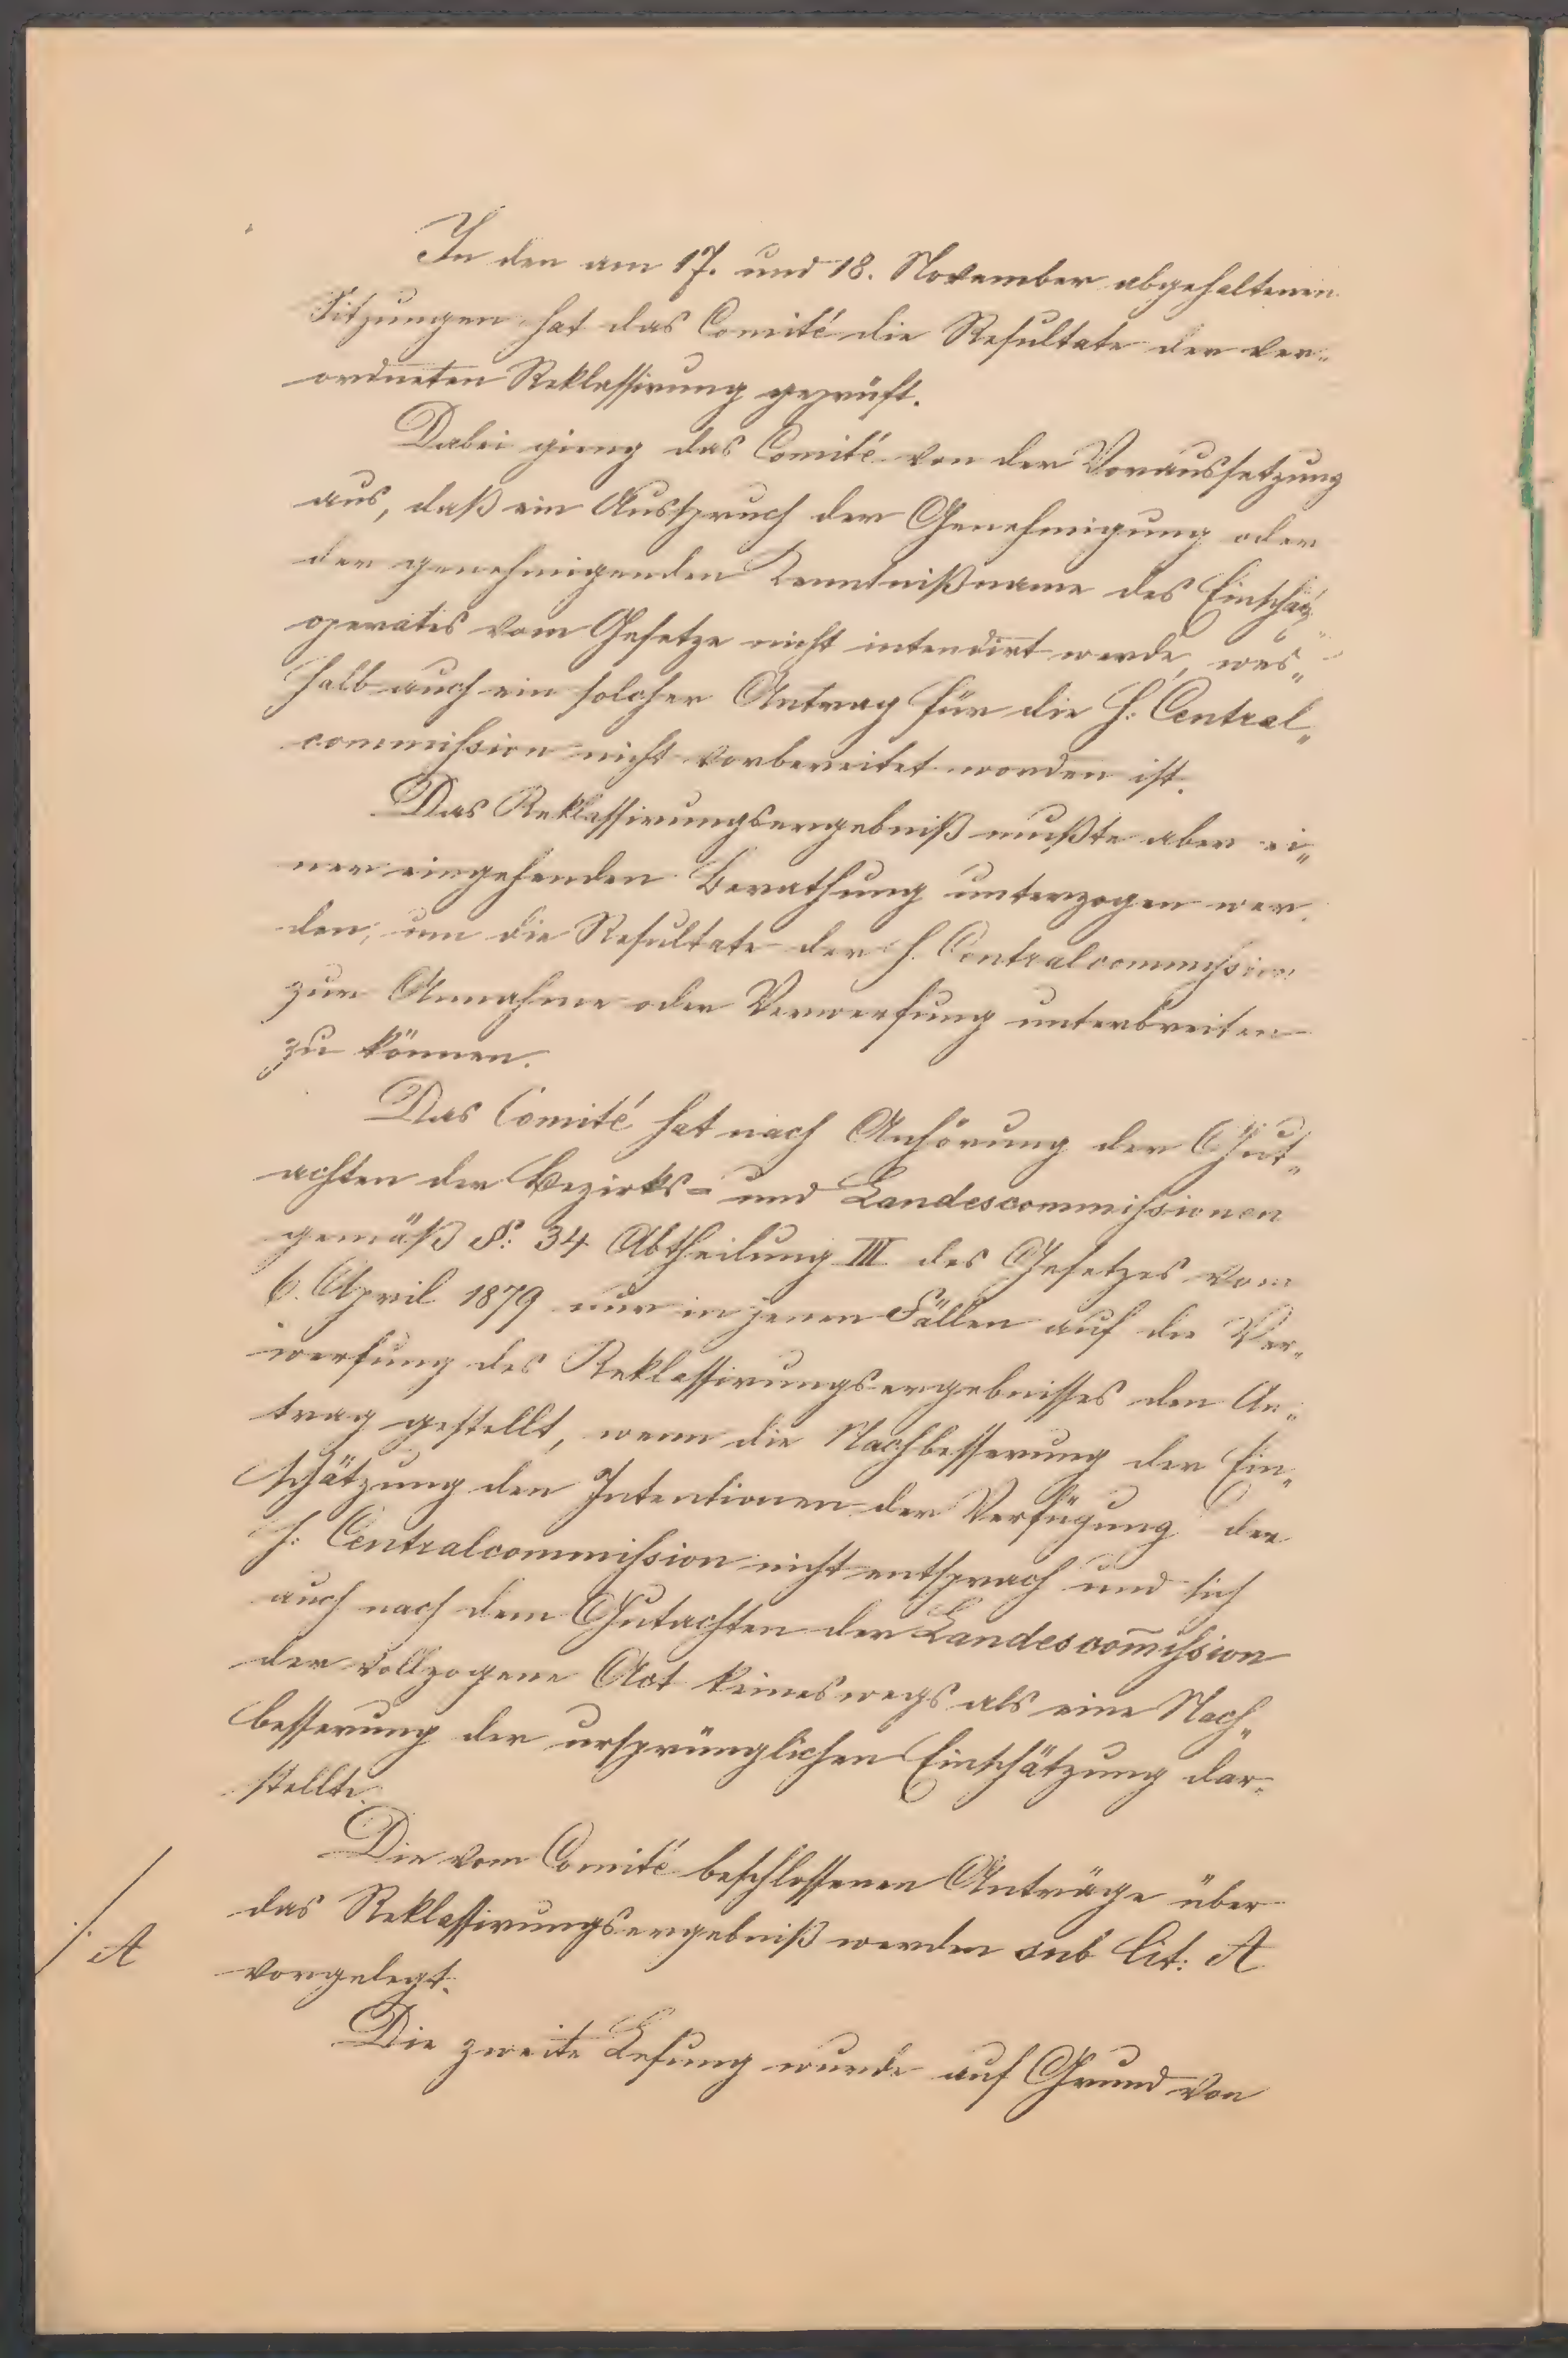 In den am 17. und 18. November abgehaltenen
Sitzungen hat das Comité die Resultate der ver„
ordneten Reklassirung geprüft.
Dabei gieng das Comité von der Voraussetzung
aus, daß ein Ausspruch der Genehmigung oder
der genehmigenden Kenntnißname des Einschätz„
operates vom Gesetze nicht intendirt werde, wes„
halb auch ein solcher Antrag für die h: Central„
commission nicht vorbereitet worden ist.
Das Reklassirungsergebniß mußte aber ei„
ner eingehenden Berathung unterzogen wer„
den, um die Resultate der h. Centralcommission
zur Annahme oder Verwerfung unterbreiten
zu können.
Das Comité hat nach Anhörung der Gut„
achten der Bezirks= und Landescommissionen
gemäß §: 34 Abtheilung III des Gesetzes vom
6. April 1879 nur in jenen Fällen auf die Ver„
werfung des Reklassirungsergebnisses den An„
trag gestellt, wenn die Nachbesserung der Ein„
schätzung den Intentionen der Verfügung der
h: Centralcommission nicht entsprach und sich
auch nach dem Gutachten der Landescom̄ission
der vollzogene Act keineswegs als eine Nach„
besserung der ursprünglichen Einschätzung dar„
stellte.
Die vom Comité beschlossenen Anträge über
das Reklassirungsergebniß werden sub lit: A
./. A
vorgelegt.
Die zweite Lesung wurde auf Grund von